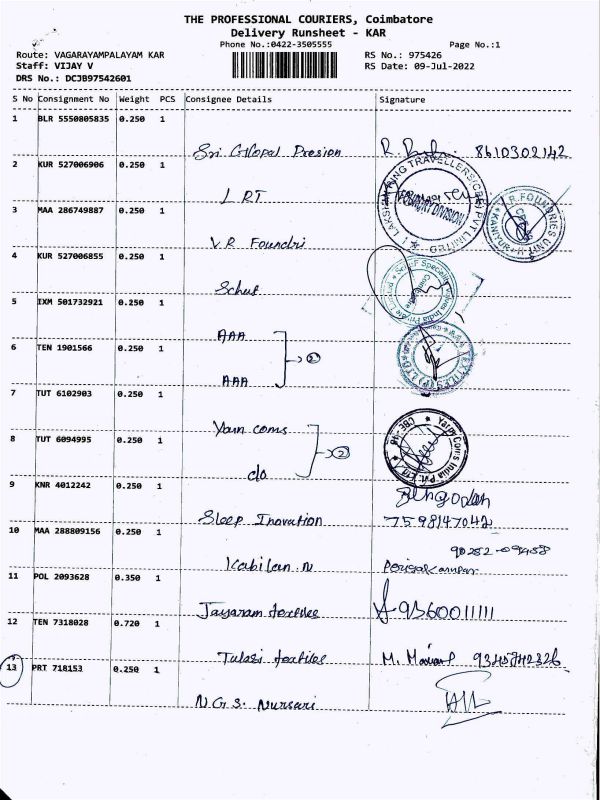 THE PROFESSIONAL COURIERS, Coimbatore
Delivery Runsheet - KAR
Phone No.:0422-3505555 Page No.:1
Route: VAGARAYAMPALAYAM KAR RS No.: 975426
Staff: VIJAY V RS Date: 09-Jul-2022
DRS No.: DCJB97542601
S No Consignment No Weight PCS Consignee Details Signature
1 BLR 5550805835 0.250 1
Sri Gopal Presion 8610302142
2 KUR 527006906 0.250 1
LRT
LAKSHMI RING TRAVELLERS (CBE) PVT LIMITED
FOUNDRY DIVISION
3 MAA 286749887 0.250 1
V.R Foundri
R.FOUNDRIES UNIT II
4 KUR 527006855 0.250 1
Schuf
Schuf Speciality Valves India Private Limited
Coimbatore
5 IXM 501732921 0.250 1
AAA
6 TEN 1901566 0.250 1
AAA 2
7 TUT 6102903 0.250 1
Yarn coms
8 TUT 6094995 0.250 1
do 2
Yarn Coms India Pvt. Ltd.
CBE-48
9 KNR 4012242 0.250 1
Sleep Inovation 7598147042
10 MAA 288809156 0.250 1
Kabilan.N
11 POL 2093628 0.350 1
Jayaram textiles 9360011111
12 TEN 7318028 0.720 1
Tulasi textiles M.
13 PRT 718153 0.250 1
N.G.S. Nursari